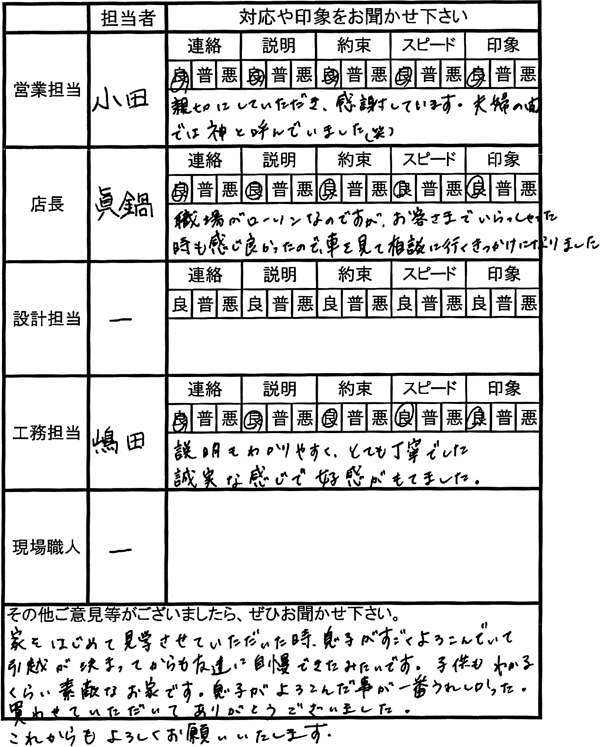 担当者 対応や印象をお聞かせ下さい
営業担当 小田
連絡 説明 約束 スピード 印象
良 普 悪 良 普 悪 良 普 悪 良 普 悪 良 普 悪
親切にしていただき、感謝しています。夫婦の間
では神と呼んでいました(笑)
店長 眞鍋
連絡 説明 約束 スピード 印象
良 普 悪 良 普 悪 良 普 悪 良 普 悪 良 普 悪
職場がローソンなのですが、お客さまでいらっしゃった
時も感じ良かったので、車を見て相談に行くきっかけになりました
設計担当 ー
連絡 説明 約束 スピード 印象
良 普 悪 良 普 悪 良 普 悪 良 普 悪 良 普 悪
工務担当 嶋田
連絡 説明 約束 スピード 印象
良 普 悪 良 普 悪 良 普 悪 良 普 悪 良 普 悪
説明もわかりやすく、とても丁寧でした
誠実な感じで好感がもてました。
現場職人 ー
その他ご意見等がございましたら、ぜひお聞かせ下さい。
家をはじめて見学させていただいた時、息子がすごくよろこんでいて
引越が決まってからも友達に自慢できたみたいです。子供もわかる
くらい素敵なお家です。息子がよろこんだ事が一番うれしかった。
買わせていただいてありがとうございました。
これからもよろしくお願いいたします。